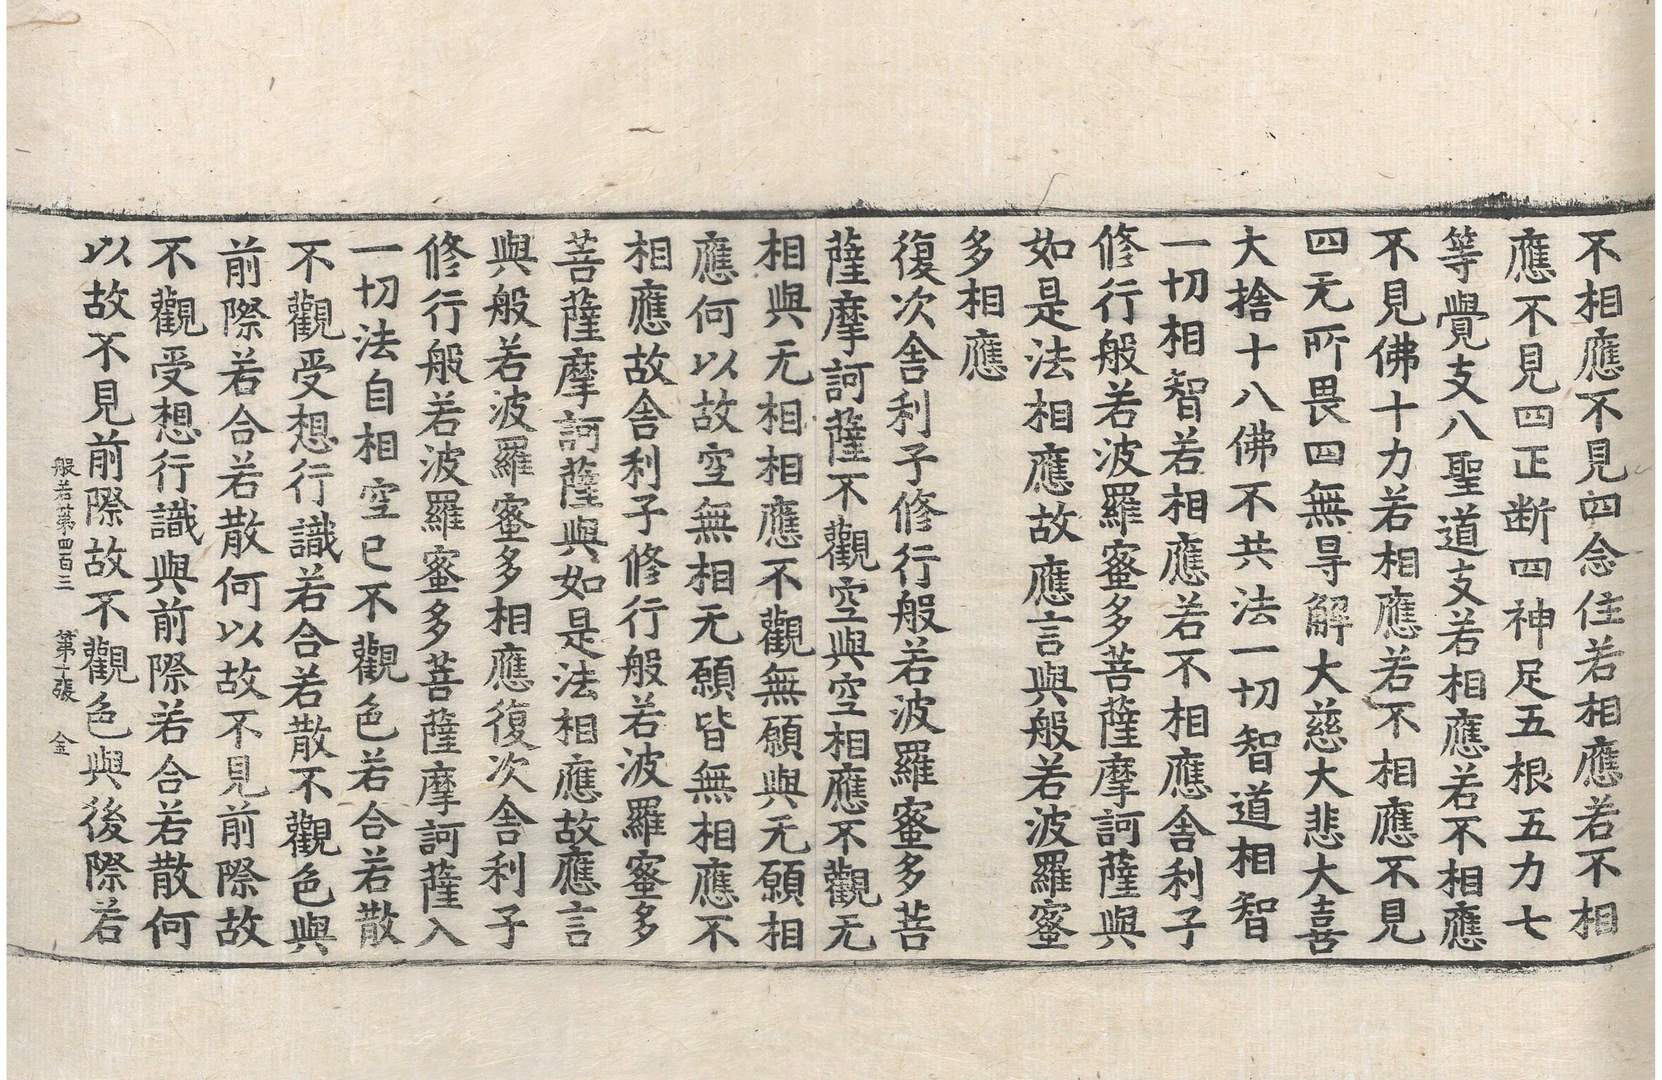 不相應不見四念住若相應若不相
應不見四正断四神足五根五力七
等覺支八聖道支若相應若不相應
不見佛十力若相應若不相應不見
四无所畏四無㝵解大慈大悲大喜
大捨十八佛不共法一切智道相智
一切相智若相應若不相應舍利子
修行般若波羅蜜多菩薩摩訶薩與
如是法相應故應言與般若波羅蜜
多相應
復次舍利子修行般若波羅蜜多菩
薩摩訶薩不觀空與空相應不觀无
相與无相相應不觀無願與无願相
應何以故空無相无願皆無相應不
相應故舍利子修行般若波羅蜜多
菩薩摩訶薩與如是法相應故應言
與般若波羅蜜多相應復次舍利子
修行般若波羅蜜多菩薩摩訶薩入
一切法自相空已不觀色若合若散
不觀受想行識若合若散不觀色與
前際若合若散何以故不見前際故
不觀受想行識與前際若合若散何
以故不見前際故不觀色與後際若
般若第四百三 第十張 金